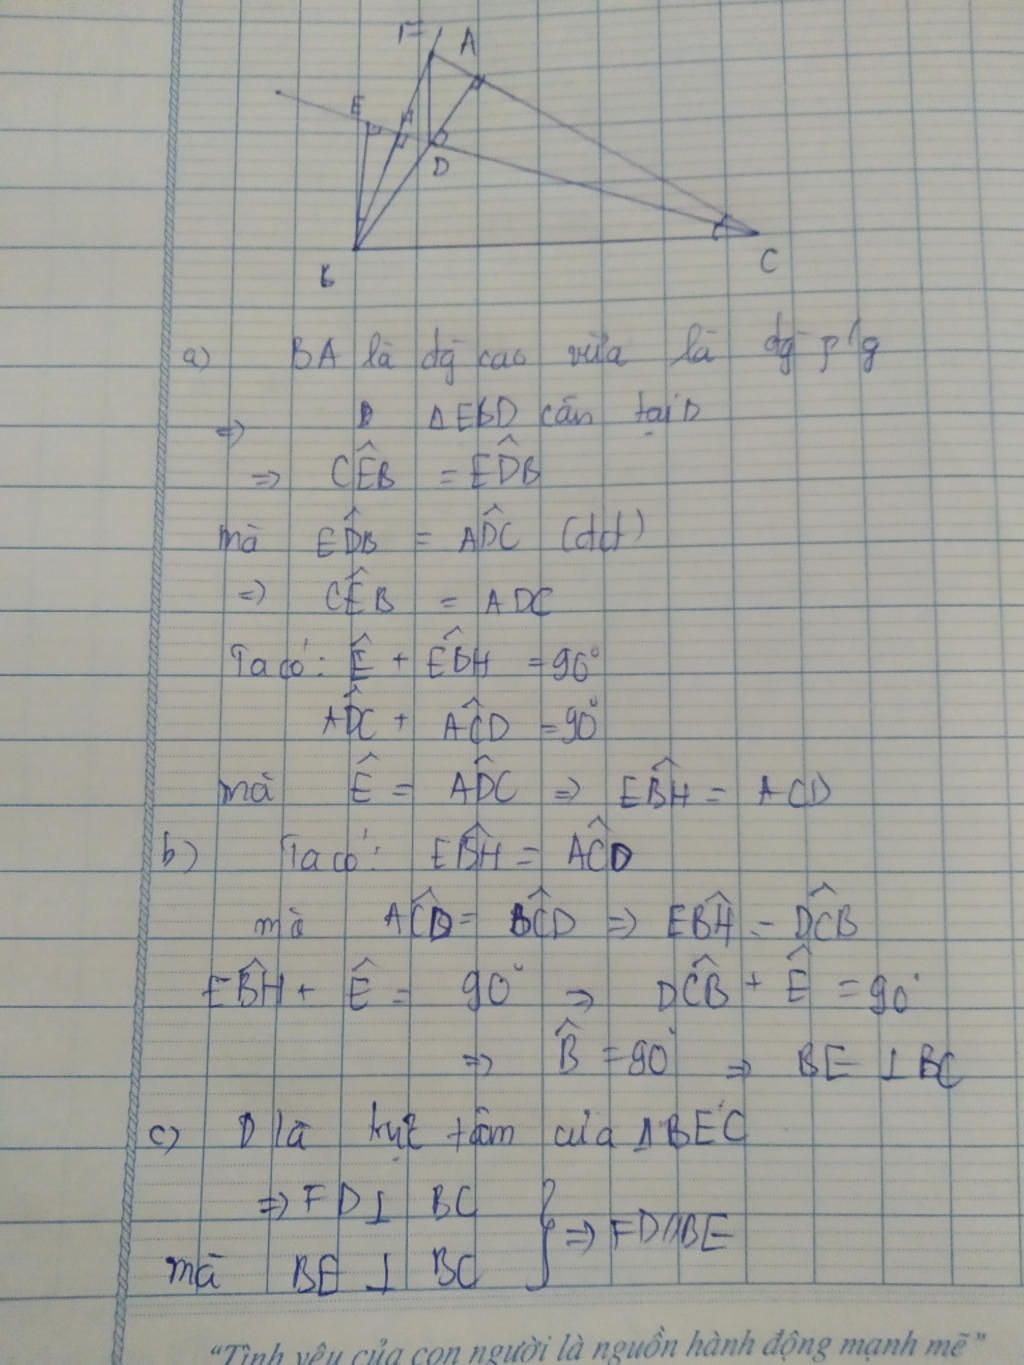 F A
E H
D
B C
a) BA là đg cao vừa là đg p/g
=> ΔEBD cân tại D
=> CÊB = ED̂B
mà ED̂B = AD̂C (đđ)
=> CÊB = ADC
Ta có: Ê + EB̂H = 90°
AD̂C + AĈD = 90°
mà Ê = AD̂C => EB̂H = ACD
b) Ta có: EB̂H = AĈD
mà AĈD = BĈD => EB̂H = DĈB
EB̂H + Ê = 90° => DĈB + Ê = 90°
=> B̂ = 90° => BE ⊥ BC
c) D là trực tâm của ΔBEC
=> FD ⊥ BC } => FD//BE
mà BE ⊥ BC
"Tình yêu của con người là nguồn hành động mạnh mẽ"